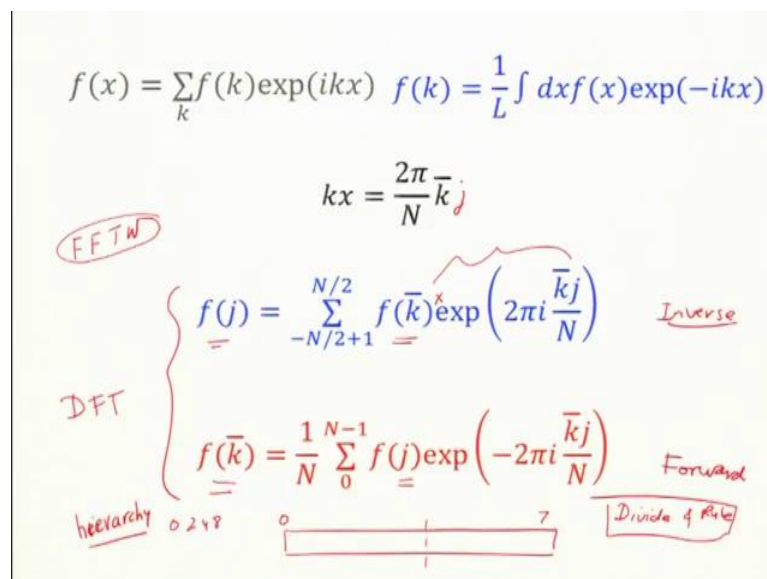 f(x) = ∑_k f(k)exp(ikx) f(k) = 1/L ∫ dxf(x)exp(−ikx)
kx = 2π/N k̄ j
FFTW
f(j) = ∑_{−N/2+1}^{N/2} f(k̄) exp(2πi k̄j/N) Inverse
DFT
f(k̄) = 1/N ∑_0^{N−1} f(j)exp(−2πi k̄j/N) Forward
heevarchy 0 2 4 8 0 7 Divide & Rule